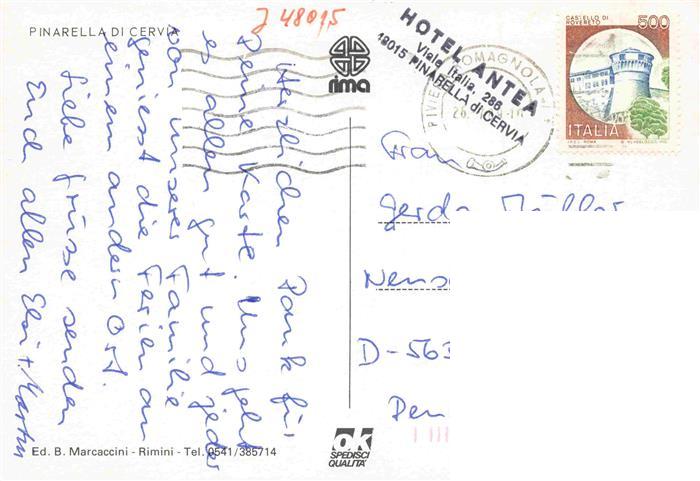 PINARELLA DI CERVIA
J 48015
rima
HOTEL ANTEA
Viale Italia, 286
48015 PINARELLA di CERVIA
CASTELLO DI
ROVERETO
500
ITALIA
Herzlichen Dank für
Deine Karte. Uns geht
es allen gut und jeder
von unserer Familie
geniesst die Ferien an
einem andern Ort.
Liebe Grüsse senden
Euch allen Elsi + Martin
Frau
Gerda Müller
D-563
Ed. B. Marcaccini - Rimini - Tel. 0541/385714
ok
SPEDISCI
QUALITA'